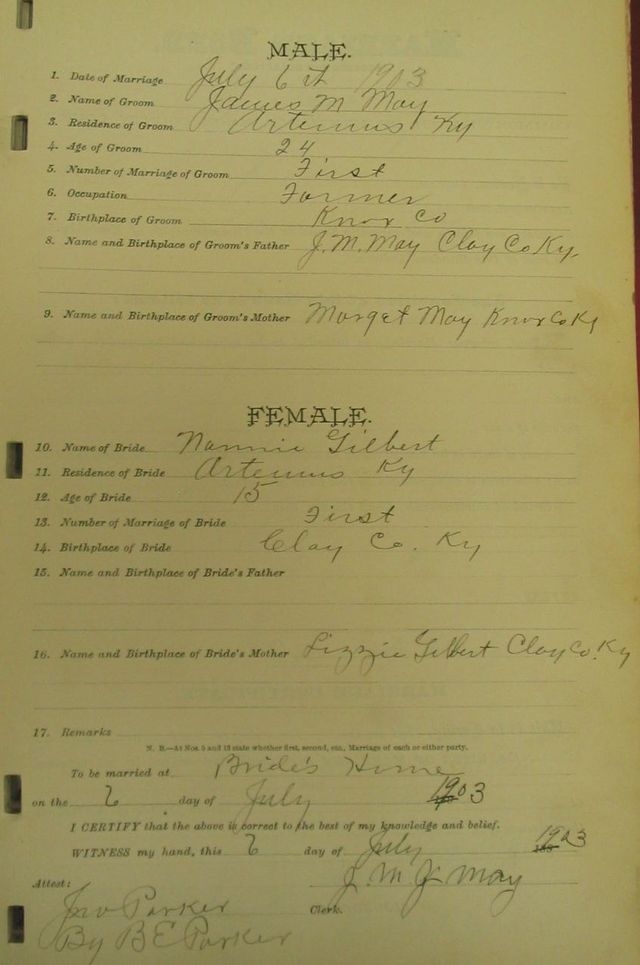 MALE.
1. Date of Marriage July 6th 1903
2. Name of Groom James M May
3. Residence of Groom Artemus Ky
4. Age of Groom 24
5. Number of Marriage of Groom First
6. Occupation Farmer
7. Birthplace of Groom Knox Co
8. Name and Birthplace of Groom's Father J. M. May Clay Co Ky.
9. Name and Birthplace of Groom's Mother Marget May Knox Co Ky
FEMALE.
10. Name of Bride Nannie Gilbert
11. Residence of Bride Artemus Ky
12. Age of Bride 15
13. Number of Marriage of Bride First
14. Birthplace of Bride Clay Co. Ky
15. Name and Birthplace of Bride's Father
16. Name and Birthplace of Bride's Mother Lizzie Gilbert Clay Co. Ky
17. Remarks
N. B.—At Nos. 5 and 13 state whether first, second, etc., Marriage of each or either party.
To be married at Bride's Home
on the 6 day of July 1903
I CERTIFY that the above is correct to the best of my knowledge and belief.
WITNESS my hand, this 6 day of July 1903
J. M. May
Attest:
Jno Parker Clerk.
By B E Parker